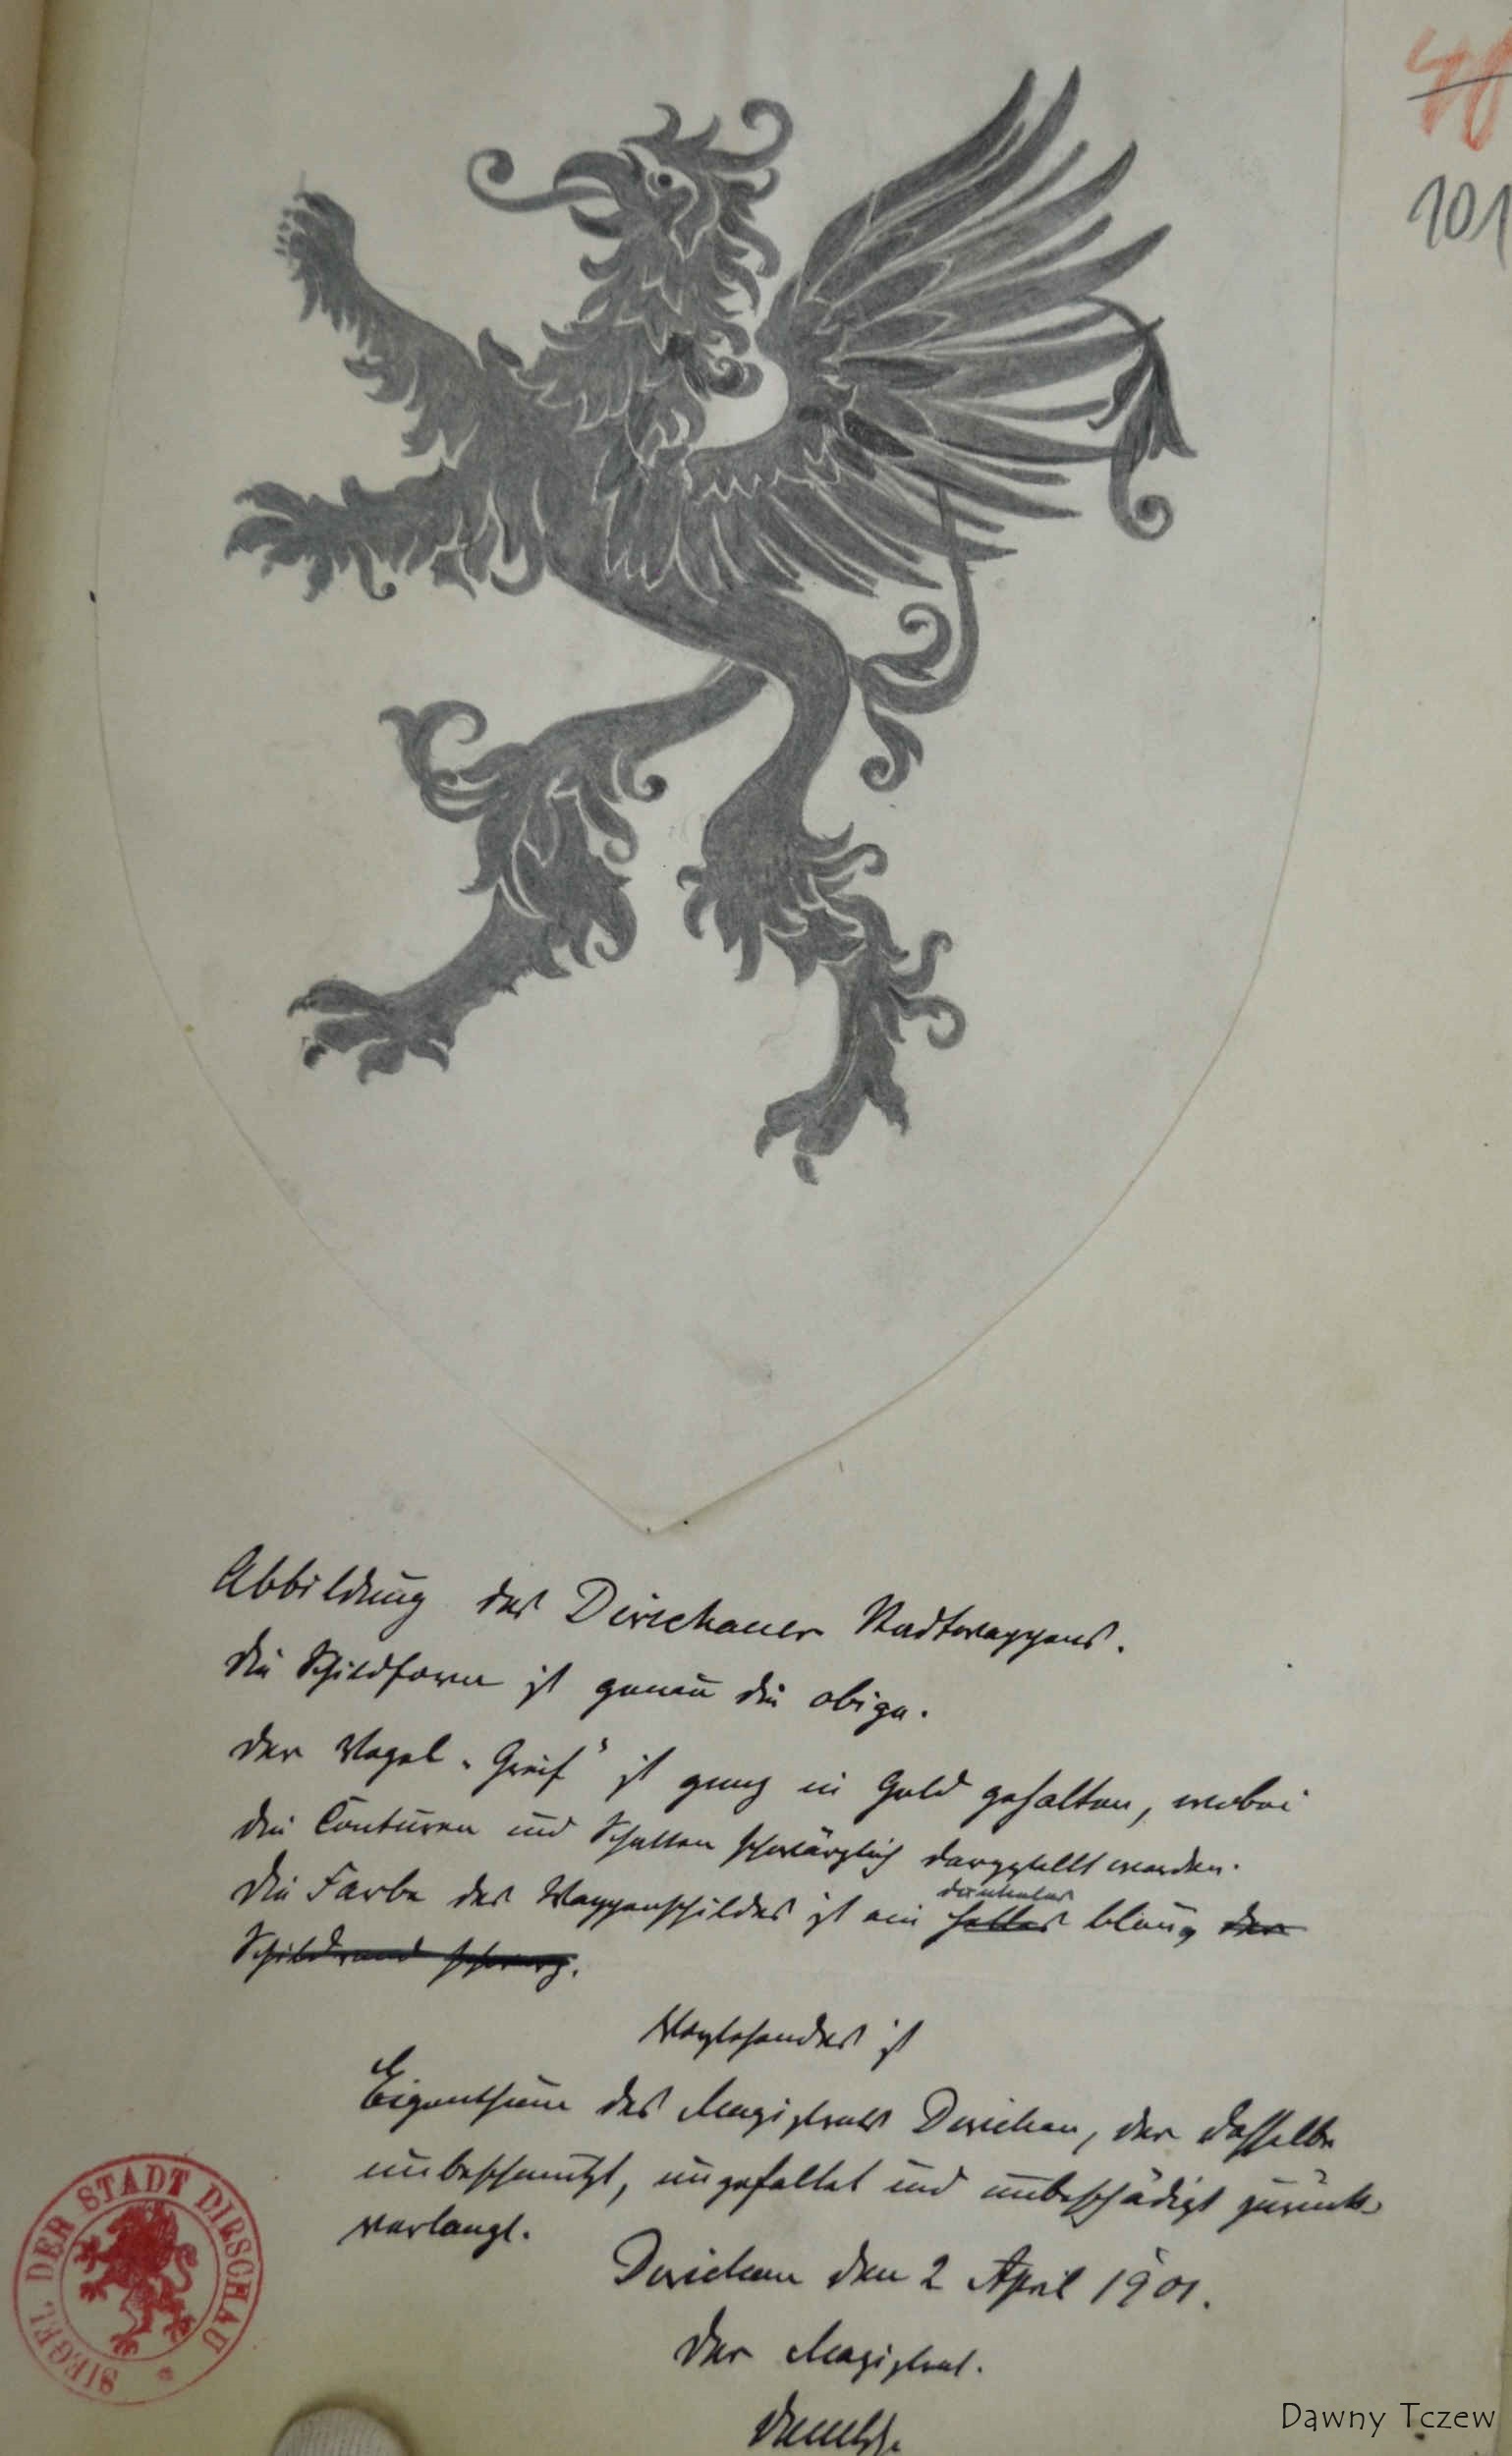 101
Abbildung des Dirschauer Stadtwappens.
Die Schildform ist genau die obige.
Der Vogel „Greif" ist ganz in Gold gehalten, wobei
die Conturen und Schatten schwärzlich dargestellt werden.
dunkeles
Die Farbe des Wappenschildes ist ein helles blau, der
Schildrand schwarz.
Vorstehendes ist
Eigenthum des Magistrats Dirschau, der dasselbe
unbeschmutzt, ungefaltet und unbeschädigt zurück-
verlangt.
Dirschau den 2 April 1901.
Der Magistrat.
SIEGEL DER STADT DIRSCHAU
Dawny Tczew